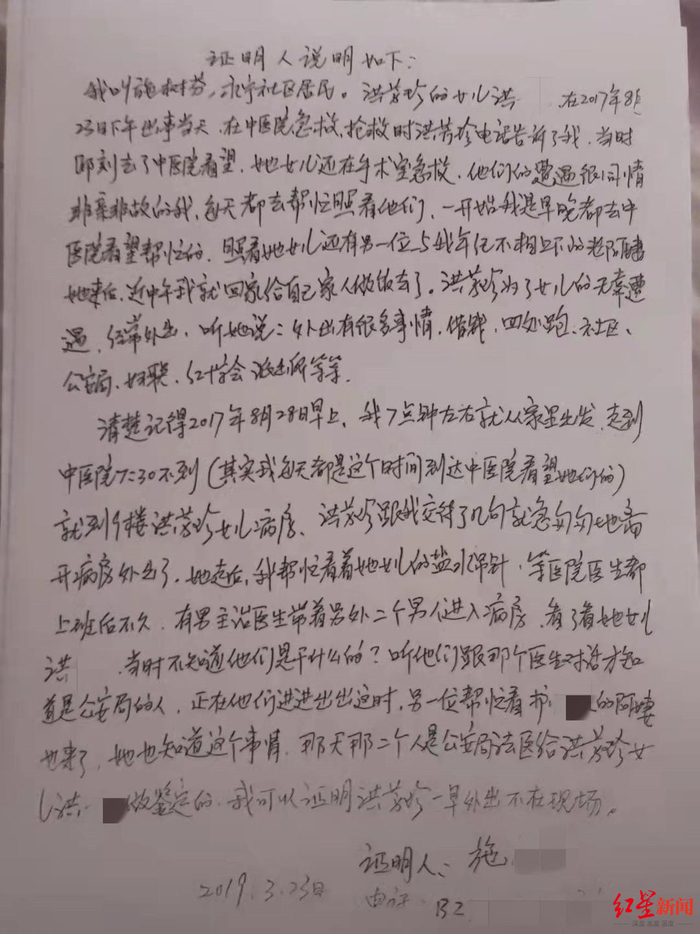 证明人说明如下：
我叫施树芬，永宁社区居民。洪芬珍的女儿洪 在2017年8月
23日下午出事当天，在中医院急救，抢救时洪芬珍电话告诉了我，当时
即刻去了中医院看望，她女儿还在手术室急救，他们的遭遇很同情
非亲非故的我，每天都去帮忙照看他们，一开始我是早晚都去中
医院看望帮忙的，照看她女儿还有另一位与我年纪不相上下的老阿婕
她来后，近中午我就回家给自己家人做饭去了。洪芬珍为了女儿的无辜遭
遇，经常外出，听她说：外出有很多事情，借钱，四处跑，社区、
公安局、妇联、红十字会派出所等等。
清楚记得2017年8月28日早上，我7点钟左右就从家里出发，走到
中医院7:30不到（其实我每天都是这个时间到达中医院看望她们的）
就到 楼洪芬珍女儿病房，洪芬珍跟我交待了几句就急匆匆地离
开病房外出了，她走后，我帮忙看着她女儿的盐水保针，等医院医生都
上班后不久，有男主治医生带着另外二个男人进入病房，看了看她女儿
洪 当时不知道他们是干什么的？听他们跟那个医生对话才知
道是公安局的人，正在他们进进出出这时，另一位帮忙看护 的阿婕
也来了，她也知道这个事情，那天那二个人是公安局法医给洪芬珍女
儿洪 做鉴定的，我可以证明洪芬珍一早外出不在现场。
证明人：施
2019.3.23日
电话 132
红星新闻